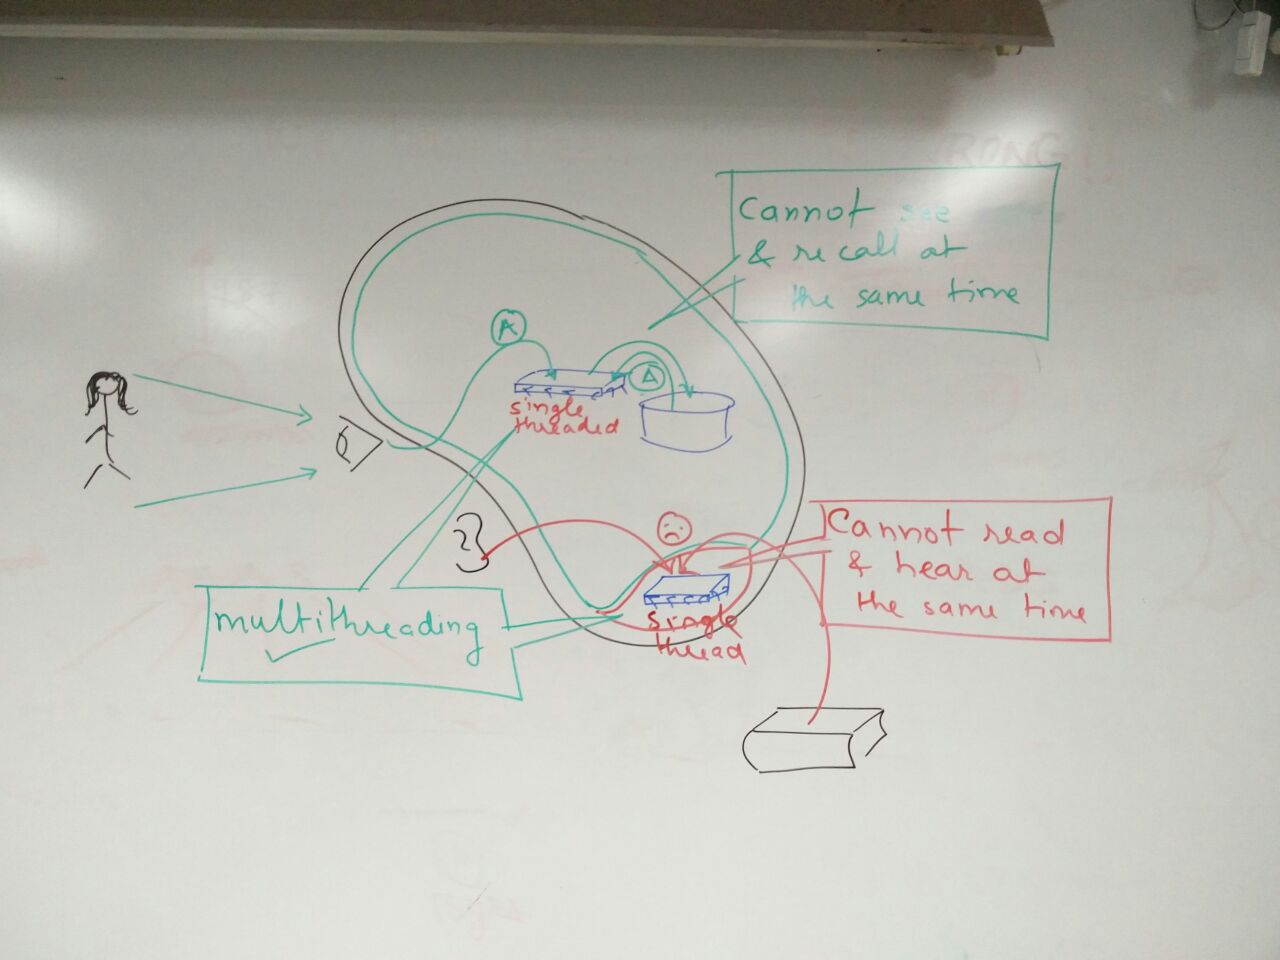 Cannot see
& recall at
the same time
A
A
single
threaded
Cannot read
& hear at
the same time
multithreading
single
thread